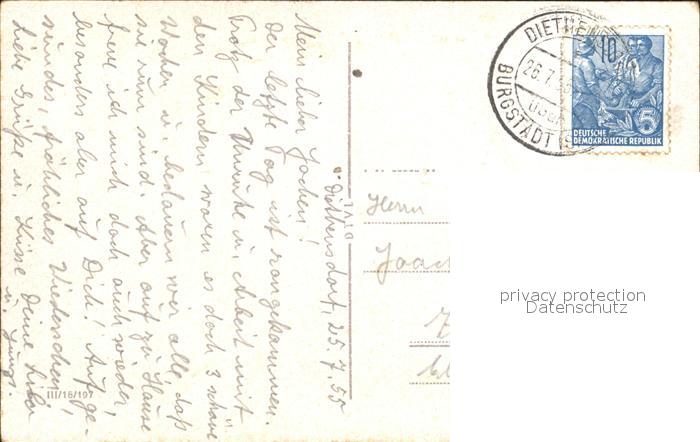 Diethensdorf, 25.7.55
Mein lieber Jochen!
Der letzte Tag ist rangekommen.
Trotz der Unruhe u. Arbeit mit
den Kindern waren es doch 3 schöne
Wochen u. bedauern wir alle, daß
sie rum sind. Aber auf zu Hause
freue ich mich doch auch wieder,
besonders aber auf Dich! Auf ge-
sundes, fröhliches Wiedersehen!
Liebe Grüße u. Küsse Deine
u. Jung.
III/18/197
DIETHENSDORF
26.7.55
ÜBER
BURGSTÄDT
10
5
DEUTSCHE
DEMOKRATISCHE REPUBLIK
Herrn
Joac
privacy protection
Datenschutz